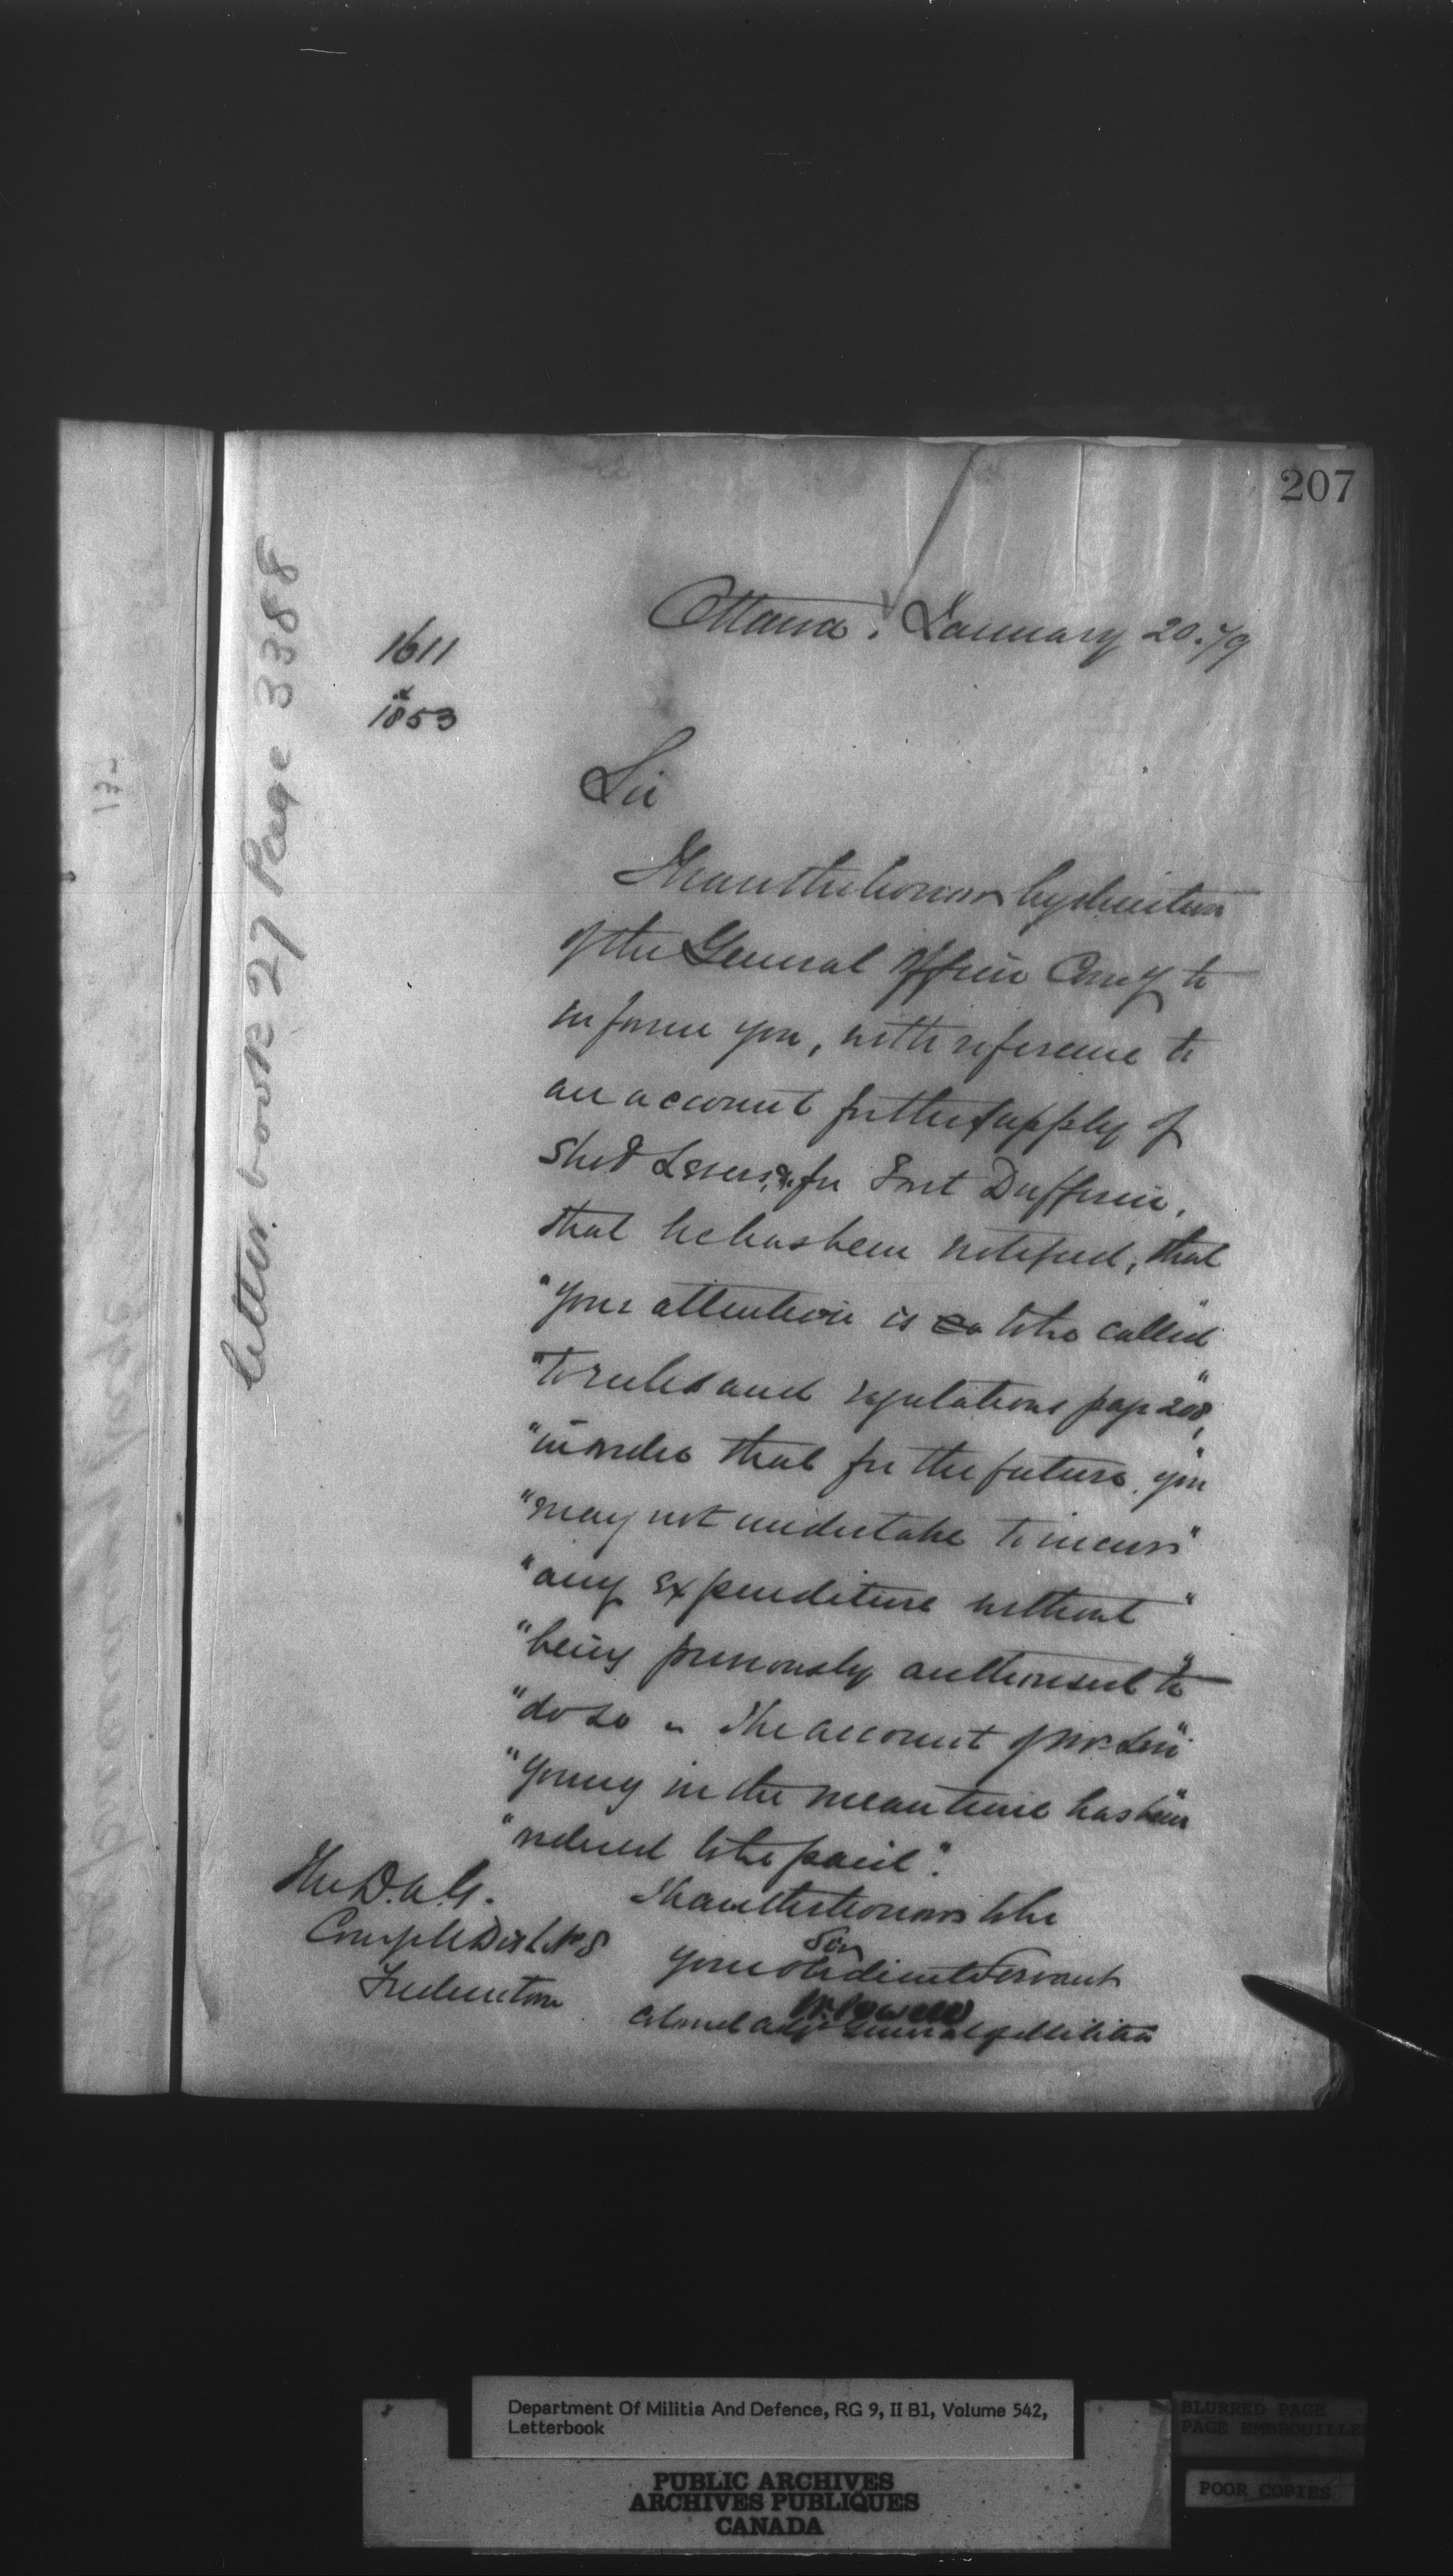 207
Letter book 27 Page 3388
Ottawa, January 20. 79
1611
&
1853
Sir
I have the honor by direction
of the General Officer Comg to
inform you, with reference to
an account for the supply of
Shot &c for Fort Dufferin,
that he has been notified, that
"your attention is to be called"
"to rules and regulations page 208,"
"in order that for the future, you"
"may not undertake to incur"
"any expenditure without"
"being previously authorised to"
"do so - The account of Mr
"Young in the meantime has been"
"ordered to be paid".
I have the honor to be
Sir
your obedient Servant
W. Powell
Colonel Adjt General of Militia
The D.A.G.
Comg Mil Dist No 8
Fredericton
13-
Department Of Militia And Defence, RG 9, II B1, Volume 542,
Letterbook
BLURRED PAGE
PAGE EMBROUILLEE
POOR COPIES
PUBLIC ARCHIVES
ARCHIVES PUBLIQUES
CANADA